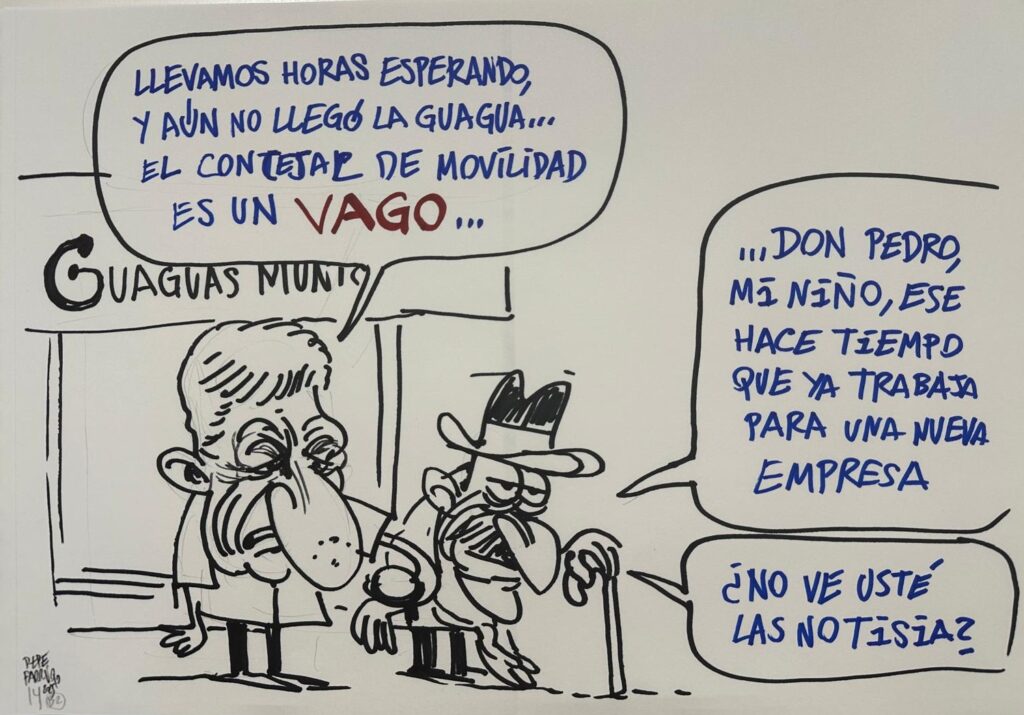 LLEVAMOS HORAS ESPERANDO,
Y AÚN NO LLEGÓ LA GUAGUA...
EL CONTEJAL DE MOVILIDAD
ES UN VAGO...
GUAGUAS MUNIC
...DON PEDRO,
MI NIÑO, ESE
HACE TIEMPO
QUE YA TRABAJA
PARA UNA NUEVA
EMPRESA
¿NO VE USTÉ
LAS NOTISIA?
PEPE